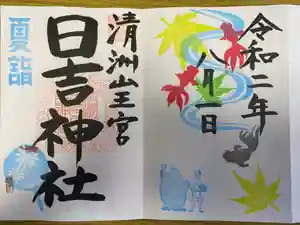 令和二年
八月一日
清洲山王宮
日吉神社
夏詣